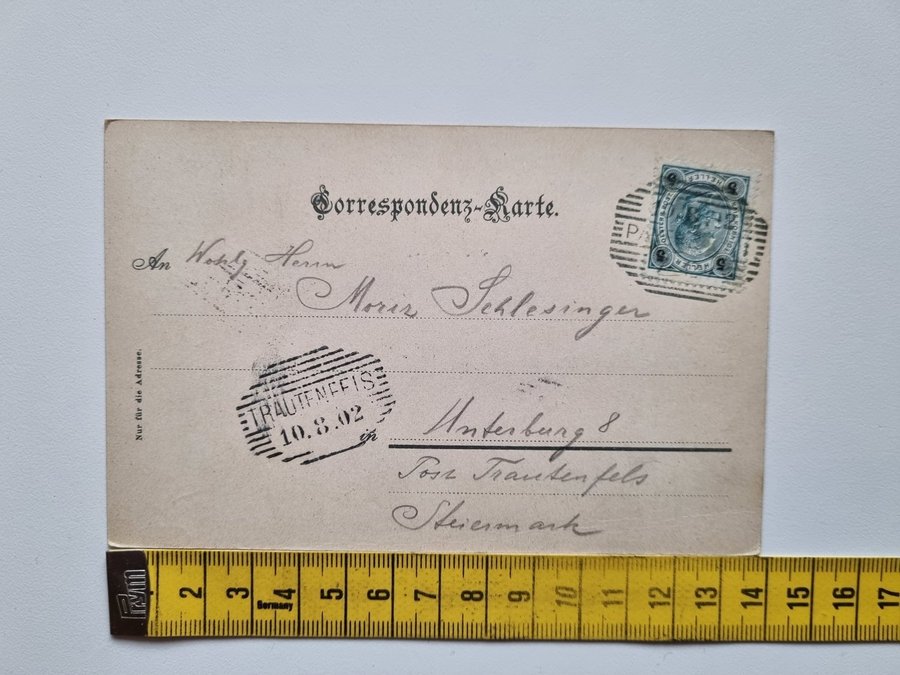 Correspondenz-Karte.
An Wohlg Herrn
Moriz Schlesinger
Nur für die Adresse.
TRAUTENFELS
10.8.02
in Unterburg 8
Post Trautenfels
Steiermark
5 HELLER 5
5 HELLER 5
Prym
2 3 4 5 6 7 8 9 10 11 12 13 14 15 16 17
Germany